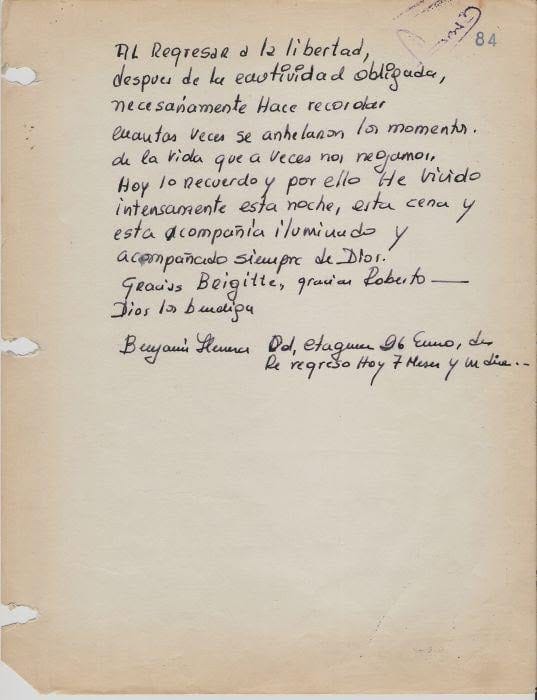 84
Al Regresar a la libertad,
despues de la cautividad obligada,
necesariamente Hace recordar
cuantas veces se anhelaron los momentos.
de la vida que a veces nos negamos.
Hoy lo recuerdo y por ello He vivido
intensamente esta noche, esta cena y
esta acompañia iluminado y
acompañado siempre de Dios.
Gracias Beigitte, gracias Roberto —
Dios los bendiga
Benjamin Herrera 26 Enero, de
Re regreso Hoy 7 Meses y un dia...